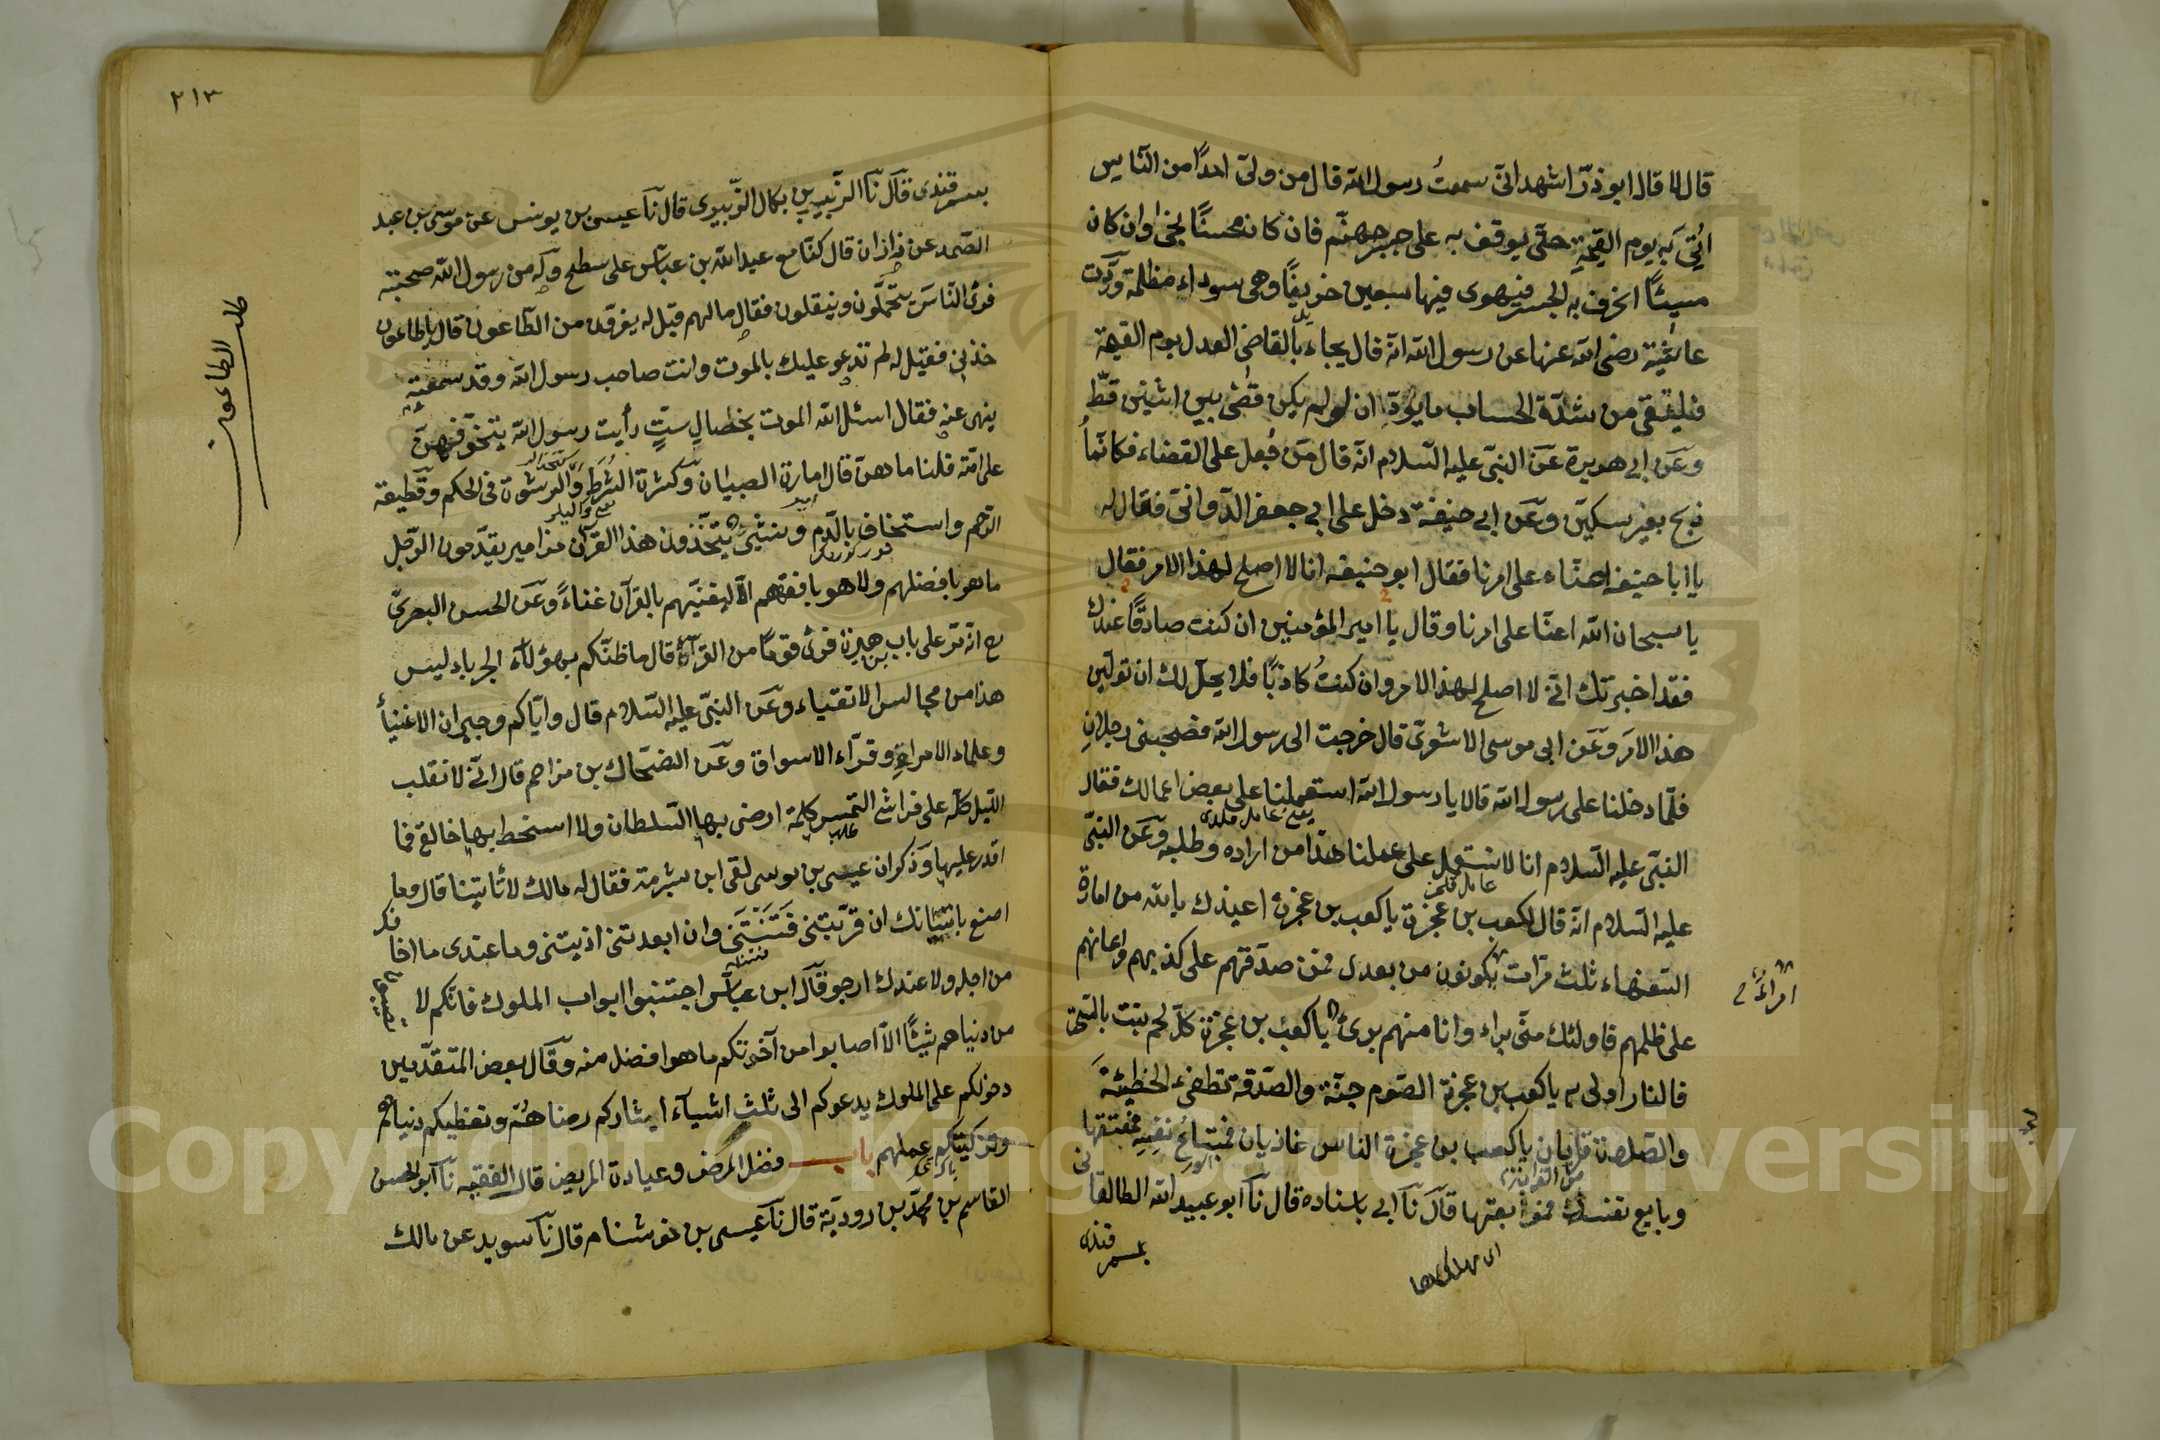 قال لا قال ابو ذرّ اشهد انّى سمعتُ رسول الله قال من ولىّ احدًا من النّاس
اُتِىَ به يوم القيمةِ حتّى يوقف به على جسر جهنّم فان كان محسنًا نجى وان كان
مسيئًا انخرف به الجسر فيهوى فيها سبعين خريفًا وهى سوداء مظلمة وروت
عائشة رضى الله عنها عن رسول الله انّه قال يجاء بالقاضى العدل يوم القيمة
فليقى من شدّة الحساب ما يودّ ان لو لم يكن قضى بين اثنين قطّ
وعن ابى هريرة عن النبىّ عليه السّلام انّه قال من جُعل على القضاء فكانّما
ذبح بغير سكّين وعن ابى حنيفة دخل على ابى جعفر الدّوانقى فقال له
يا ابا حنيفه اعنّا على امرنا فقال ابو حنيفه انا لا اصلح لهذا الامر فقال
يا سبحان الله اعنّا على امرنا وقال يا امير المؤمنين ان كنت صادقًا عندك
فقد اخبرتك انّى لا اصلح لهذا الامر وان كنتُ كاذبًا فلا يحلّ لك ان تولّينى
هذا الامر وعن ابى موسى الاشعرىّ قال خرجت الى رسول الله فصحبنى رجلان
فلمّا دخلنا على رسول الله قالا يا رسول الله استعملنا على بعض اعمالك فقال
النبّى عليه السّلام انا لا نستعمل على عملنا هذا من اراده وطلبه وعن النبّى
عليه السّلام انّه قال لكعب بن عجزة يا كعب بن عجزة اعيذك بالله من امارة
السّفهاء ثلث مرّات يكونون من بعدى فمن صدّقهم على كذبهم واعانهم
امراء
على ظلمهم فاولئك منّى براء وانا منهم برىء يا كعب بن عجزة كلّ لحم نبت بالسّحت
فالنار اولى به يا كعب بن عجزة الصّوم جنّة والصّدقة تطفىء الخطيئة
والصّلوة قربان يا كعب بن عجزة الناس غاديان فمبتاعٌ نفسه فمعتقها
وبايع نفسه فموبقها قال نآ ابى باسناده قال نآ ابو عبيد الله الطالقانى
بسمرقندى
٢١٣
بسمرقندى قال نآ الزّبير بن بكال الزّبيرى قال نآ عيسى بن يونس عن موسى بن عبد
الصّمد عن زاذان قال كنّا مع عبد الله بن عبّاس على سطح وله من رسول الله صحبته
فرئ النّاس يتحمّلون وينقلون فقال ما لهم قيل له يفرّون من الطّاعون قال يا طاعون
طلب الطاعون
خذنى فقيل له لم تدعو عليك بالموت وانت صاحب رسول الله وقد سمعته
ينهى عنه فقال اسئل الله الموت بخصالٍ ستٍّ رأيت رسول الله يتخوّفهنّ
على امّته قلنا ما هنّ قال امارة الصبيان وكثرة الشُرَط والرشوة فى الحكم وقطيعة
الرّحم واستخفاف بالدّم ونشئ يتّخذون هذا القرآن مزامير يقدّمون الرّجل
ما هو بافضلهم ولا هو بافقههم الّا ليغنّيهم بالقرآن غناءً وعن الحسن البصرىّ
انّه مرّ على باب بن هبيرة فرئ قومًا من القرّاء قال ما ظنّكم بهؤلاء الجربا وليس
هذا من مجالس الاتقياء وعن النبىّ عليه السّلام قال وايّاكم وجيران الاغنياء
وعلماء الامراء وقرّاء الاسواق وعن الضحّاك بن مزاحم قال انّى لاتقلب
اللّيل كلّه على فراشى التمس كلمة ارضى بها السّلطان ولا اسخط بها خالقى فما
اقدر عليها وذكر ان عيسى بن موسى لقى ابن شبرمة فقال له مالك لا تأتينا قال وما
اصنع باتيانك ان قرّبتنى فتنتنى وان ابعدتنى اذيتنى وما عندى ما اخافك
من اجله ولا عندك ارجو قال ابن عبّاس اجتنبوا ابواب الملوك فانّكم لا تصيبون
من دنياهم شيئًا الّا اصابوا من آخرتكم ما هو افضل منه وقال بعض المتقدّمين
دخولكم على الملوك يدعوكم الى ثلث اشياء ايثاركم رضاهم وتعظيمكم دنياهم
وتزكيتكم عملهم باب فضل المرض وعيادة المريض قال الفقيه نآ ابو الحسن
القاسم بن محمّد بن روديّة قال نآ عيسى بن خوشنام قال نآ سويد عن مالك
Copyright © King Saud University